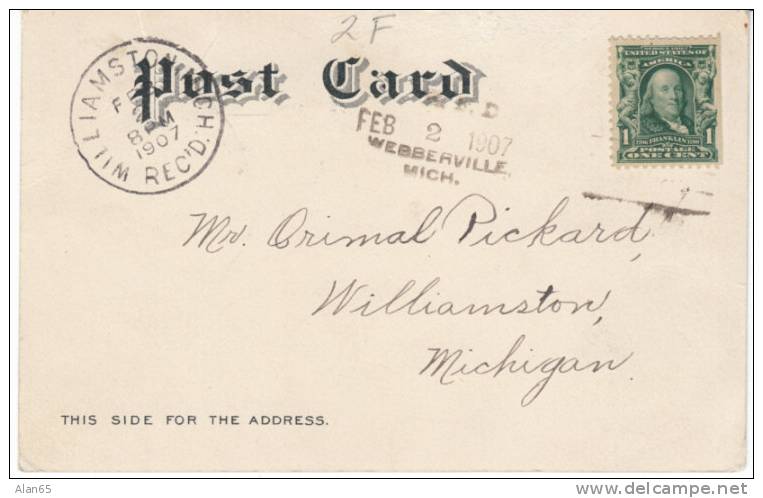 2F
Post Card
WILLIAMSTON MICH. REC'D.
8 PM
1907
R.F.D
FEB 2 1907
WEBBERVILLE,
MICH.
UNITED STATES OF
AMERICA
1 FRANKLIN 1
POSTAGE
ONE CENT
Mr. Orimal Pickard,
Williamston,
Michigan.
THIS SIDE FOR THE ADDRESS.
Alan65
delcampe.net